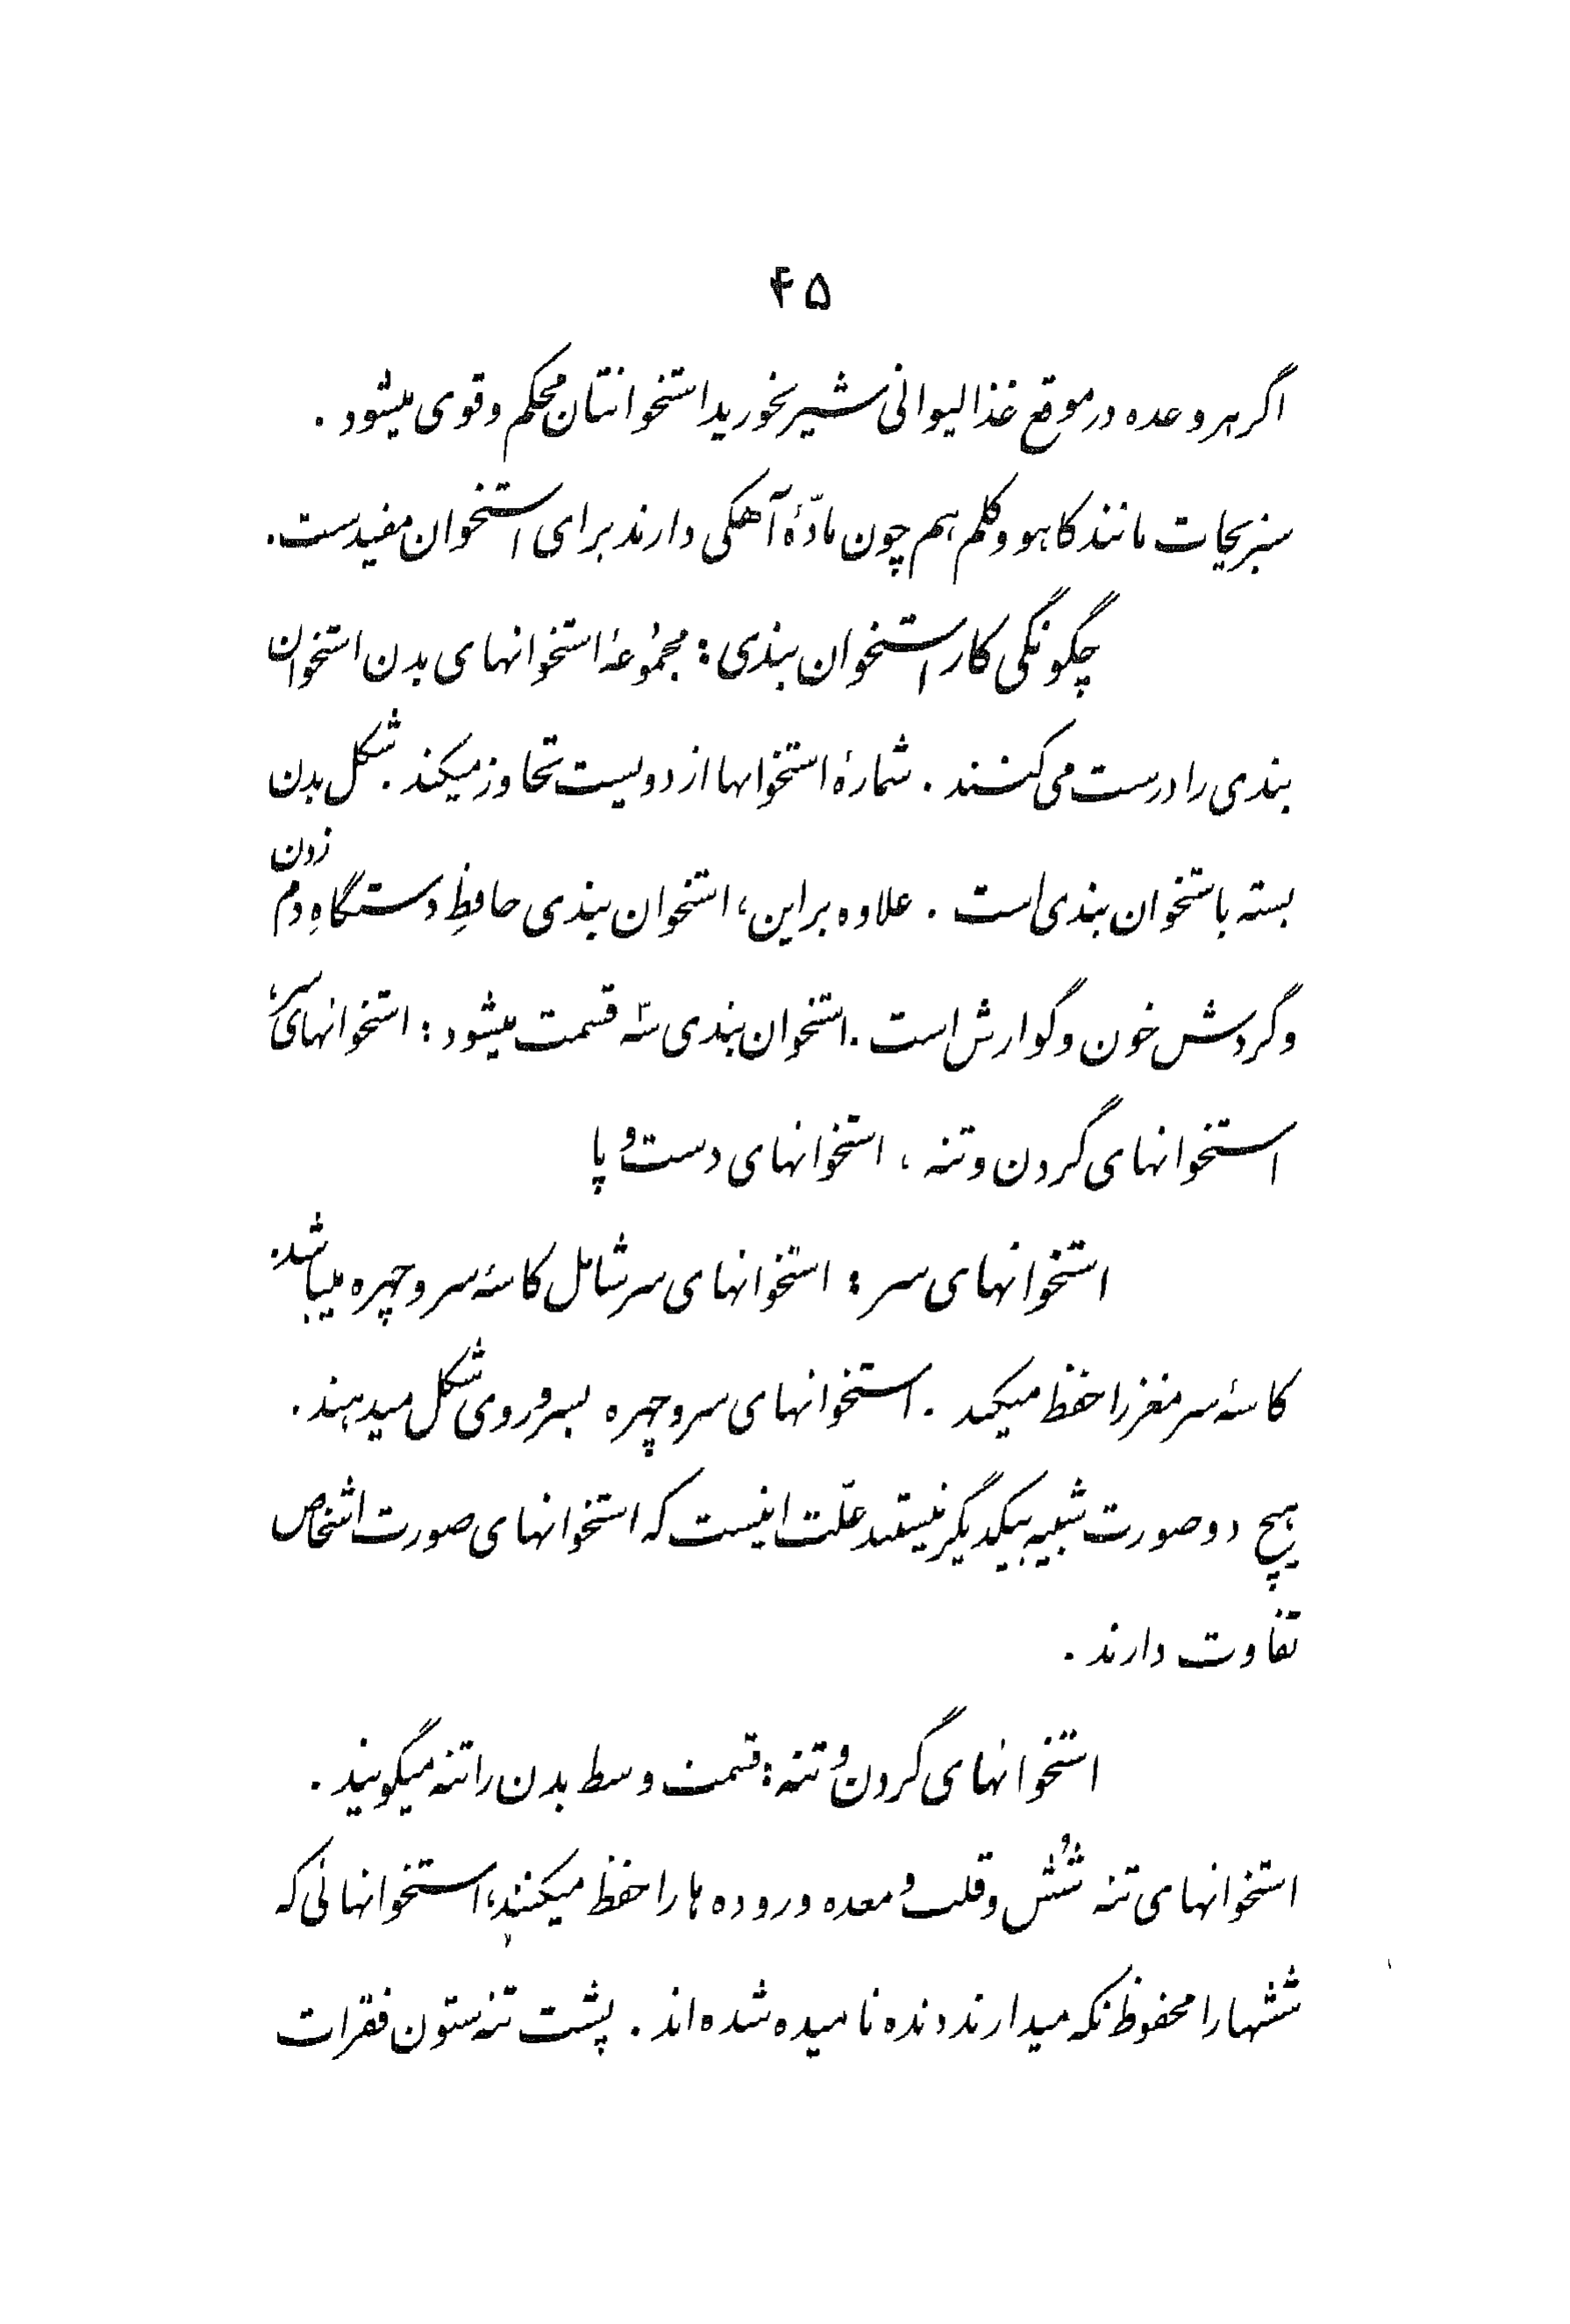 ۴۵
اگر هر وعده در موقع غذا لیوانی شیر بخورید استخوانتان محکم و قوی میشود .
سبزیجات مانند کاهو و کلم هم چون مادّهٔ آهکی دارند برای استخوان مفیدست .
چگونگی کار استخوان بندی : مجمُوعهٔ استخوانهای بدن استخوان
بندی را درست می کنند . شمارهٔ استخوانها از دویست تجاوز میکند . شکل بدن
بسته باستخوان بندی است . علاوه بر این، استخوان بندی حافظِ دستگاهِ دم زدن
و گردش خون و گوارش است . استخوان بندی سه قسمت میشود : استخوانهای سر،
استخوانهای گردن و تنه ، استخوانهای دست و پا
استخوانهای سر : استخوانهای سر شامل کاسهٔ سر و چهره میباشد .
کاسهٔ سر مغز را حفظ میکند . استخوانهای سر و چهره بسر و روی شکل میدهند .
هیچ دو صورت شبیه بیکدیگر نیستند علّت اینست که استخوانهای صورت اشخاص
تفاوت دارند .
استخوانهای گردن و تنه : قسمت وسط بدن را تنه میگویند .
استخوانهای تنه شُش و قلب و معده و روده ها را حفظ میکنند، استخوانهائی که
ششها را محفوظ نگه میدارند دنده نامیده شده اند . پشت تنه ستون فقرات